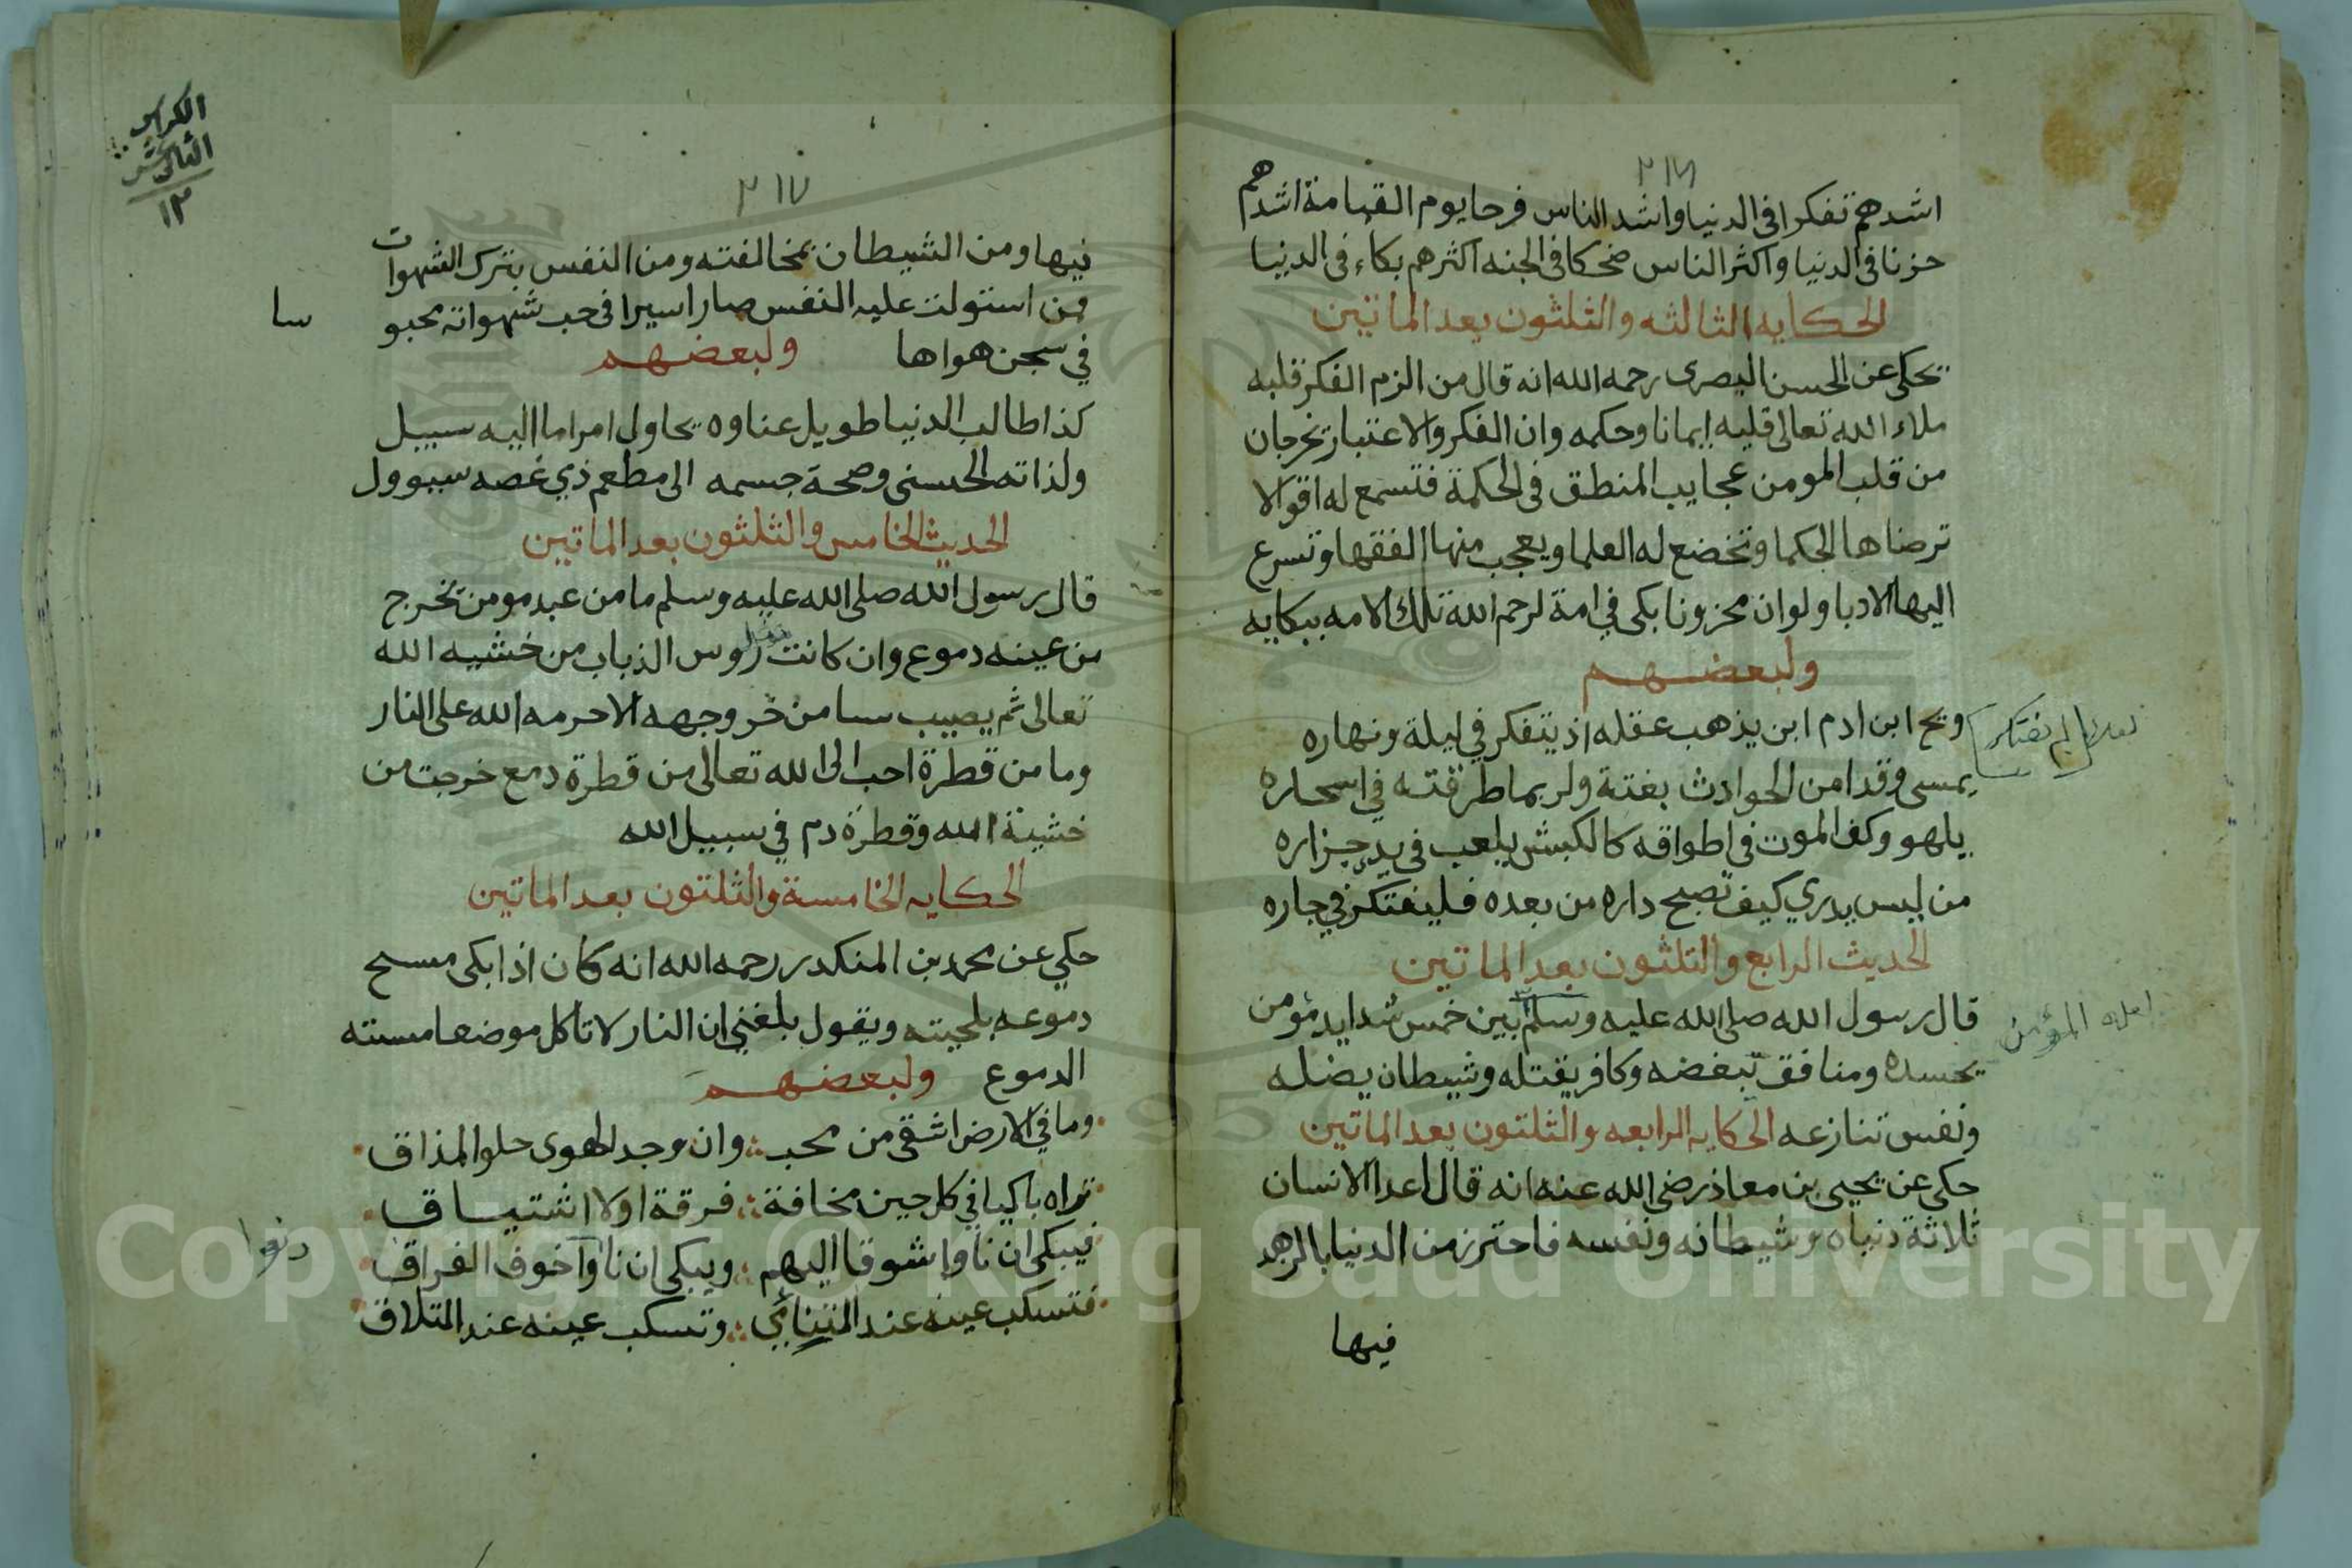 ٢١٦
اشدهم تفكرا في الدنيا واشد الناس فرحا يوم القيامة اشدهم
حزنا في الدنيا واكثر الناس ضحكا في الجنه اكثرهم بكاء في الدنيا
الحكايه الثالثه والثلثون بعد الماتين
يحكى عن الحسن البصرى رحمه الله انه قال من الزم الفكر قلبه
ملاء الله تعالى قلبه ايمانا وحكمه وان الفكر والاعتبار تخرجان
من قلب المومن عجايب المنطق فى الحكمة فتسمع له اقوالا
ترضاها الحكما وتخضع له العلما ويعجب منها الفقها وتسرع
اليها الادبا ولو ان محزونا بكى في امة لرحم الله تلك الامه ببكايه
ولبعضهم
ويح ابن ادم ابن يذهب عقله اذ يتفكر في ليلة ونهاره
لم يفتكر
يمسى وقد امن الحوادث بغتة ولربما طرقته في اسحاره
يلهو وكف الموت فى اطواقه كالكبش يلعب فى يد جزاره
من ليس يدري كيف تصبح داره من بعده فليفتكر في جاره
الحديث الرابع والثلثون بعد الماتين
قال رسول الله صلى الله عليه وسلم بين خمس شدايد مؤمن
لعله المؤمن
يحسده ومنافق يبغضه وكافر يقتله وشيطان يضله
ونفس تنازعه الحكايه الرابعه والثلثون بعد الماتين
حكى عن يحيى بن معاذ رضى الله عنه انه قال اعدا الانسان
ثلاثة دنياه وشيطانه ونفسه فاحترز من الدنيا بالزهد
فيها
الكراس
الثانى عشر
١٢
٢١٧
فيها ومن الشيطان بمخالفته ومن النفس بترك الشهوات
فمن استولت عليه النفس صار اسيرا فى حب شهواته محبو
سا
في سجن هواها ولبعضهم
كذا طالب الدنيا طويل عناوه يحاول امرا ما اليه سبيل
ولذاته الحسنى وصحة جسمه الى مطعم ذي غصه سيوول
الحديث الخامس والثلثون بعد الماتين
قال رسول الله صلى الله عليه وسلم ما من عبد مومن تخرج
من عينه دموع وان كانت مثل روس الذباب من خشيه الله
تعالى ثم يصيب سيا من حر وجهه الا حرمه الله على النار
وما من قطرة احب الى الله تعالى من قطرة دمع خرجت من
خشية الله وقطرة دم في سبيل الله
الحكايه الخامسة والثلثون بعد الماتين
حكي عن محمد بن المنكدر رحمه الله انه كان اذا بكى مسح
دموعه بلحيته ويقول بلغني ان النار لا تاكل موضعا مسته
الدموع ولبعضهم
وما في الارض اشقى من محب وان وجد الهوى حلو المذاق
تراه باكيا في كل حين مخافة فرقة او لاشتياق
فيبكى ان ناوا شوقا اليهم ويبكى ان ناوا خوف الفراق
دنوا
فتسكب عينه عند التنائي وتسكب عينه عند التلاق
Copyright © King Saud University